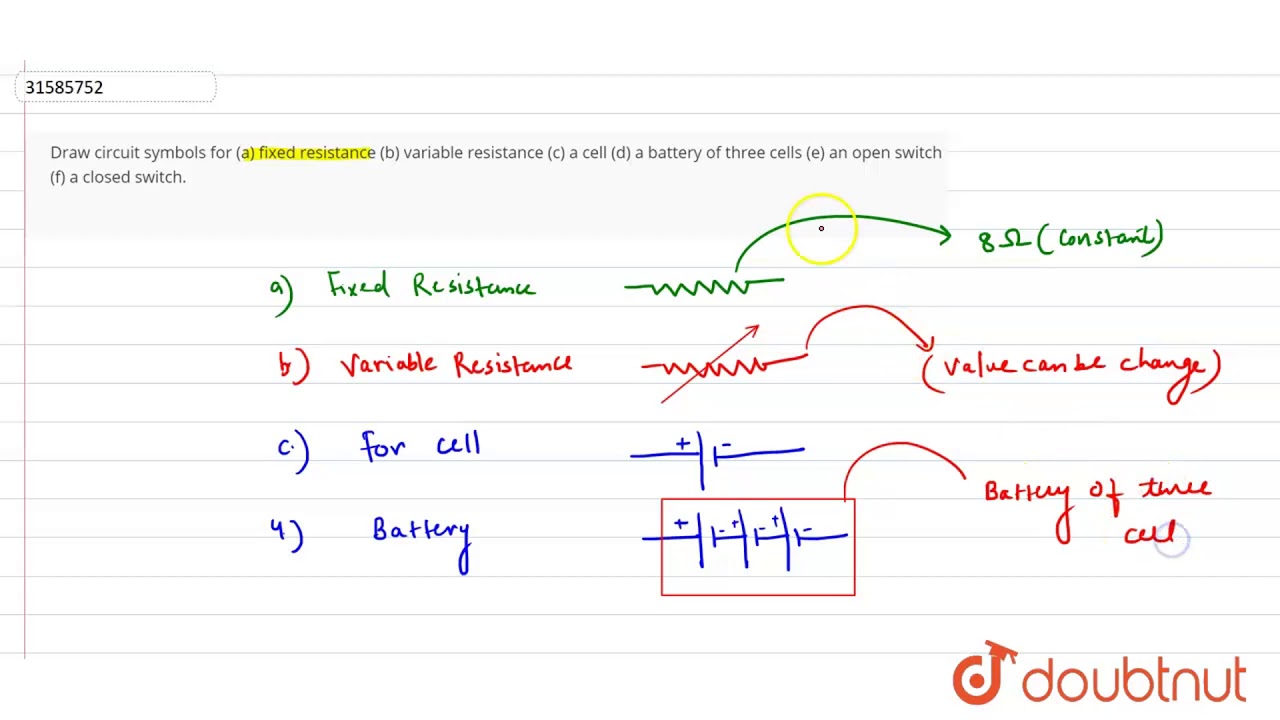 31585752
Draw circuit symbols for (a) fixed resistance (b) variable resistance (c) a cell (d) a battery of three cells (e) an open switch
(f) a closed switch.
8Ω (Constant)
a) Fixed Resistance
b) Variable Resistance
(Value can be change)
c.) For cell
+ -
4) Battery
+ - + - + -
Battery of three
cell
doubtnut